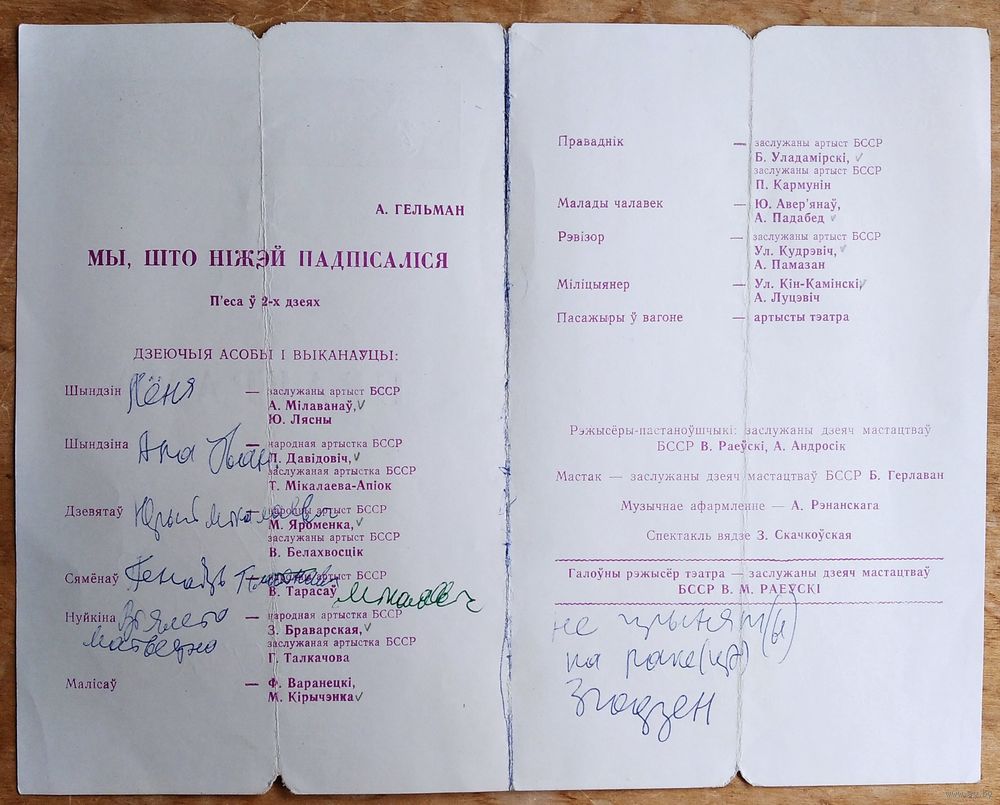 А. ГЕЛЬМАН
МЫ, ШТО НІЖЭЙ ПАДПІСАЛІСЯ
П'еса ў 2-х дзеях
ДЗЕЮЧЫЯ АСОБЫ І ВЫКАНАЎЦЫ:
Шындзін Лёня — заслужаны артыст БССР
А. Мілаванаў,
Ю. Лясны
Шындзіна — народная артыстка БССР
Л. Давідовіч,
заслужаная артыстка БССР
Т. Мікалаева-Апіок
Дзевятаў Юрый — народны артыст БССР
М. Яроменка,
заслужаны артыст БССР
В. Белахвосцік
Сямёнаў — заслужаны артыст БССР
В. Тарасаў
Нуйкіна — народная артыстка БССР
З. Браварская,
заслужаная артыстка БССР
Г. Талкачова
Малісаў — Ф. Варанецкі,
М. Кірычэнка
Праваднік — заслужаны артыст БССР
Б. Уладамірскі,
заслужаны артыст БССР
П. Кармунін
Малады чалавек — Ю. Авер'янаў,
А. Падабед
Рэвізор — заслужаны артыст БССР
Ул. Кудрэвіч,
А. Памазан
Міліцыянер — Ул. Кін-Камінскі,
А. Луцэвіч
Пасажыры ў вагоне — артысты тэатра
Рэжысёры-пастаноўшчыкі: заслужаны дзеяч мастацтваў
БССР В. Раеўскі, А. Андросік
Мастак — заслужаны дзеяч мастацтваў БССР Б. Герлаван
Музычнае афармленне — А. Рэнанскага
Спектакль вядзе З. Скачкоўская
Галоўны рэжысёр тэатра — заслужаны дзеяч мастацтваў
БССР В. М. РАЕЎСКІ
не прынят(ы)
на
Згодзен